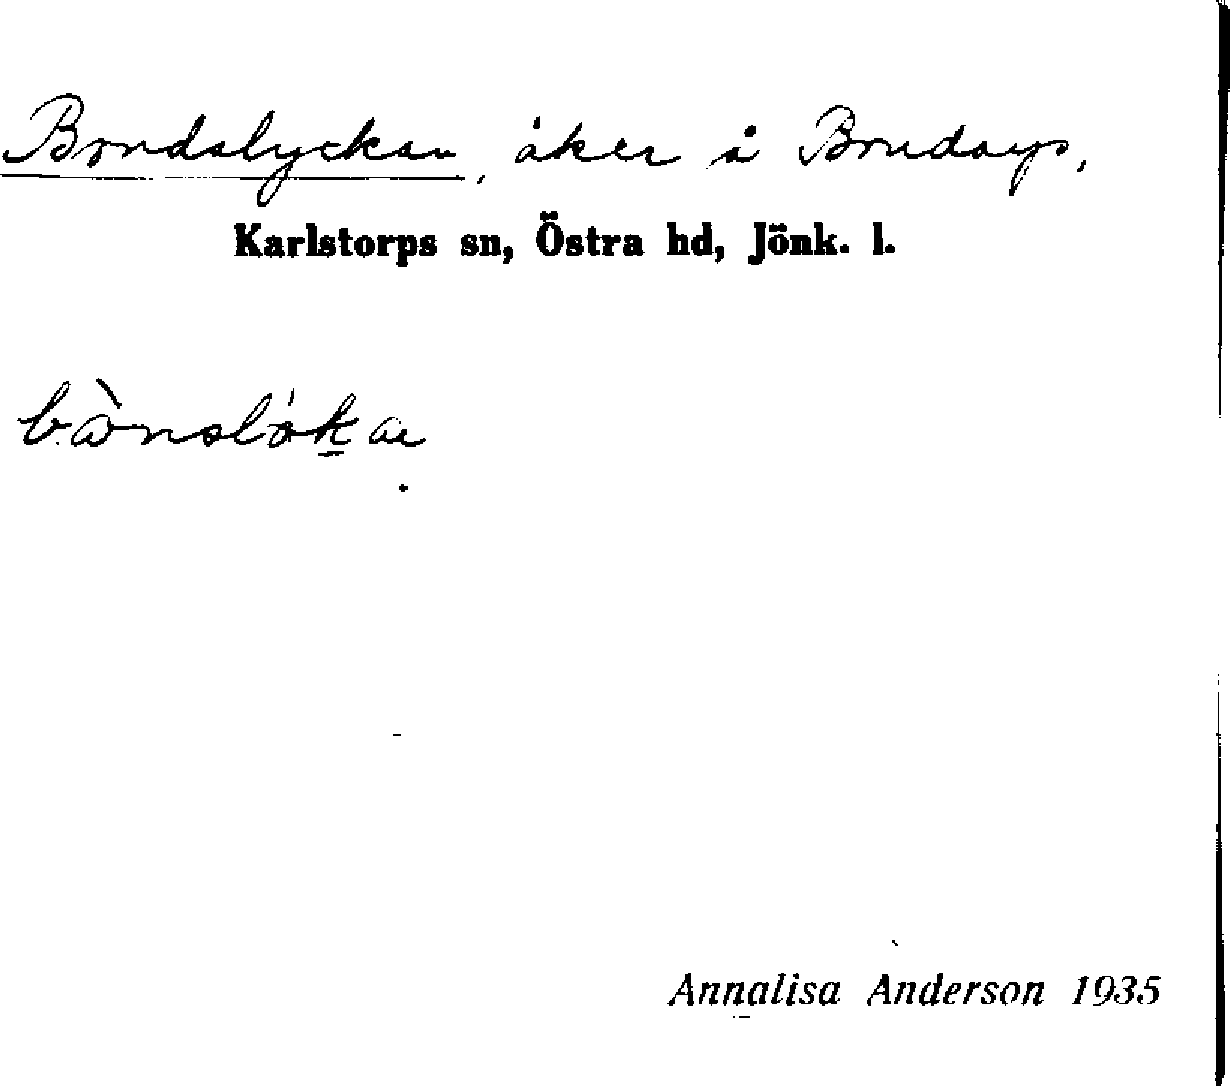 Bondalyckan, åker å Bondarp,
Karlstorps sn, Östra hd, Jönk. l.
Annalisa Anderson 1935